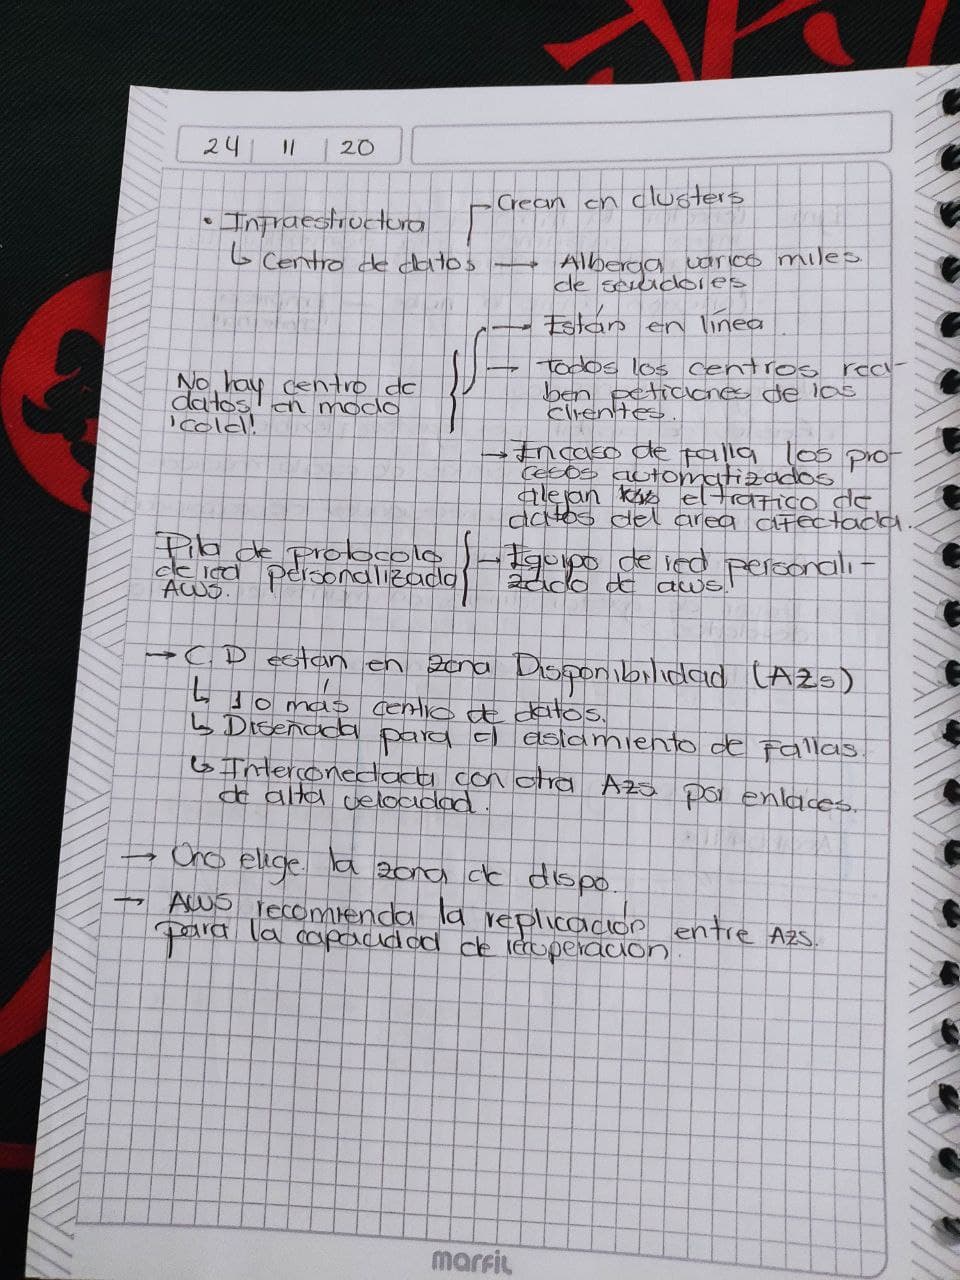 24 11 20
Crean en clusters
• Infraestructura
↳ Centro de datos → Alberga varios miles
de servidores
→ Están en línea.
→ Todos los centros reci-
ben peticiones de los
clientes.
No hay centro de
datos en modo
'cold'!
→ En caso de falla los pro-
cesos automatizados
alejan el trafico de
datos del area afectada.
Pila de protocolo
de red personalizada
AWS.
→ Equipo de red personali-
zado de aws.
→ C,D están en zona Disponibilidad (AZs)
↳ 1 o más centro de datos.
↳ Diseñada para el aislamiento de fallas.
↳ Interconectada con otra AZs por enlaces
de alta velocidad.
→ Uno elige la zona de dispo.
→ AWS recomienda la replicación entre AZs.
para la capacidad de recuperacion.
marfil